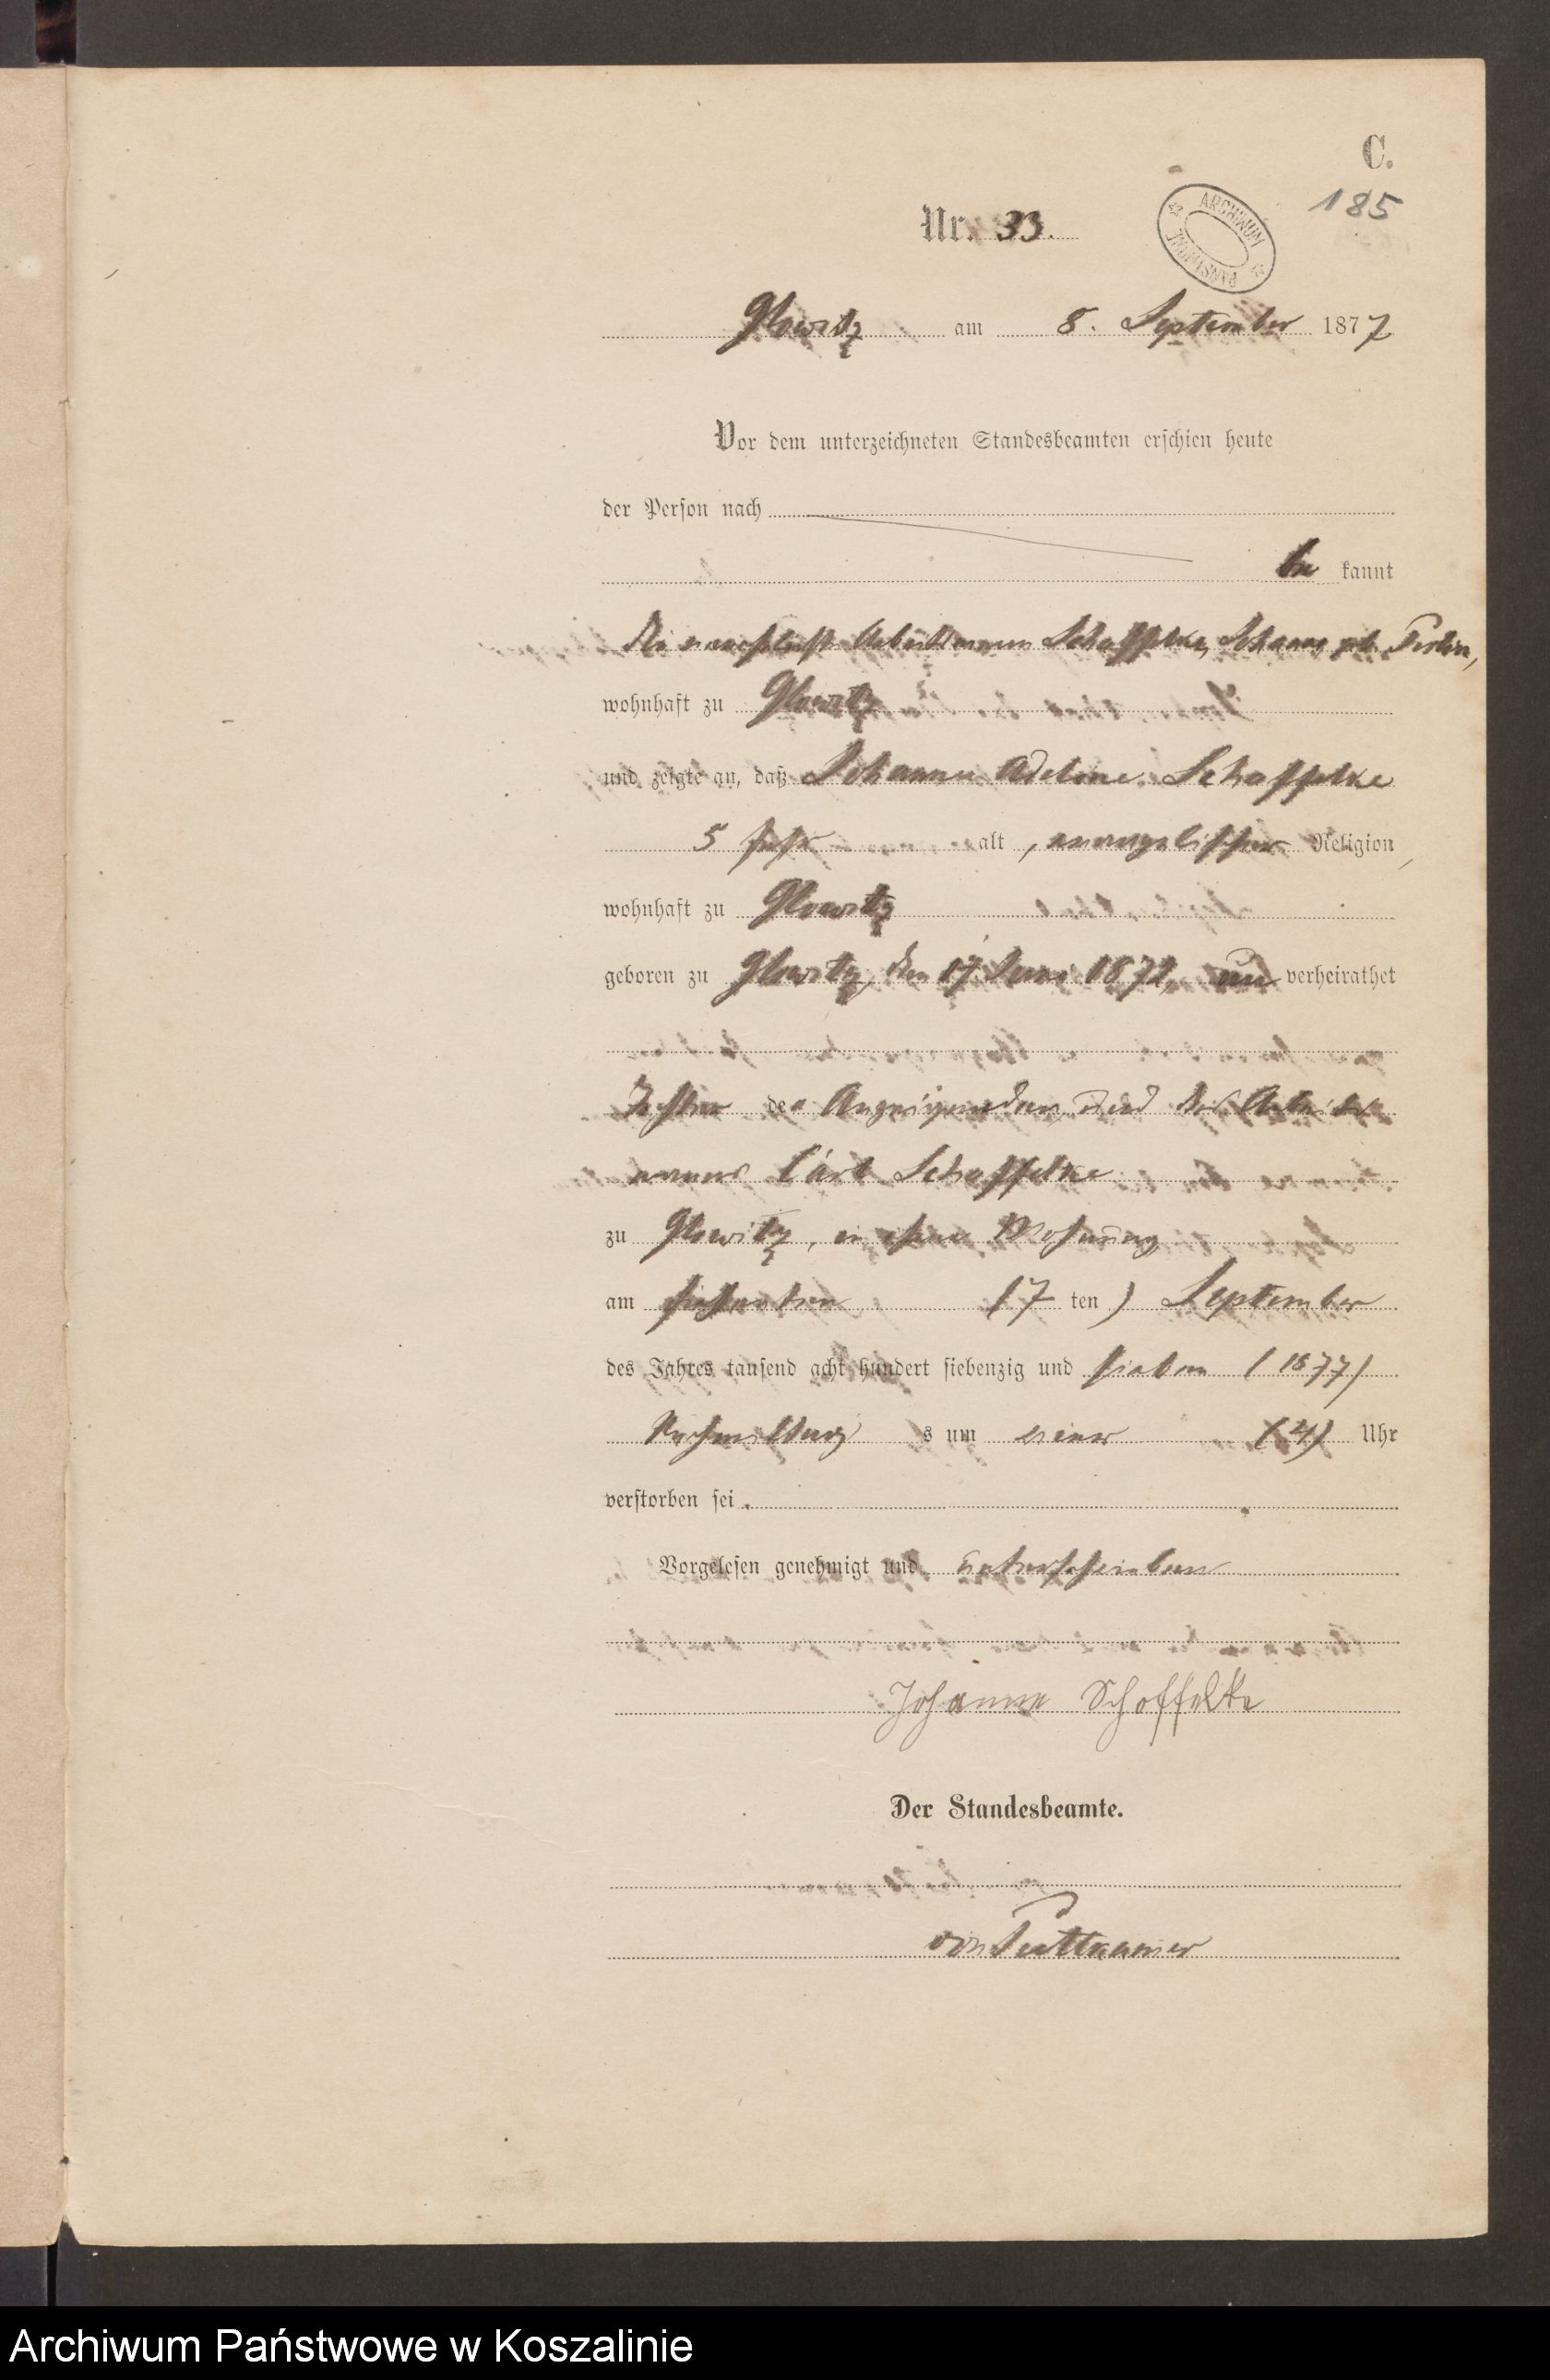 C.
185
ARCHIWUM PAŃSTWOWE
Nr. 33.
Glowitz am 8. September 1877
Vor dem unterzeichneten Standesbeamten erschien heute
der Person nach
be kannt
die verehelichte Schoffelke, Johanna geb.
wohnhaft zu Glowitz
und zeigte an, daß Johanna Adeline Schoffelke
5 Jahr alt, evangelischer Religion,
wohnhaft zu Glowitz
geboren zu Glowitz, den 17. Juni 1872, un verheirathet
Tochter der Anzeigenden und des Arbeits
manns Carl Schoffelke
zu Glowitz, in ihrer Wohnung
am siebenten (7 ten) September
des Jahres tausend acht hundert siebenzig und sieben (1877)
Nachmittag s um vier (4) Uhr
verstorben sei.
Vorgelesen genehmigt und unterschrieben
Johanna Schoffelke
Der Standesbeamte.
von Puttkamer
Archiwum Państwowe w Koszalinie